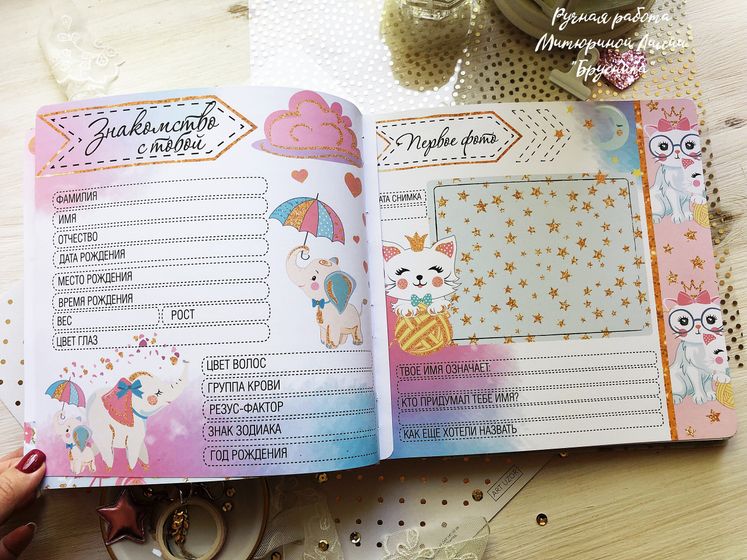 Ручная работа
Митюриной Лилии
"Брусника"
Знакомство
с тобой
ФАМИЛИЯ
ИМЯ
ОТЧЕСТВО
ДАТА РОЖДЕНИЯ
МЕСТО РОЖДЕНИЯ
ВРЕМЯ РОЖДЕНИЯ
ВЕС
РОСТ
ЦВЕТ ГЛАЗ
ЦВЕТ ВОЛОС
ГРУППА КРОВИ
РЕЗУС-ФАКТОР
ЗНАК ЗОДИАКА
ГОД РОЖДЕНИЯ
Первое фото
АТА СНИМКА
ТВОЕ ИМЯ ОЗНАЧАЕТ
КТО ПРИДУМАЛ ТЕБЕ ИМЯ?
КАК ЕЩЕ ХОТЕЛИ НАЗВАТЬ
ART UZOR